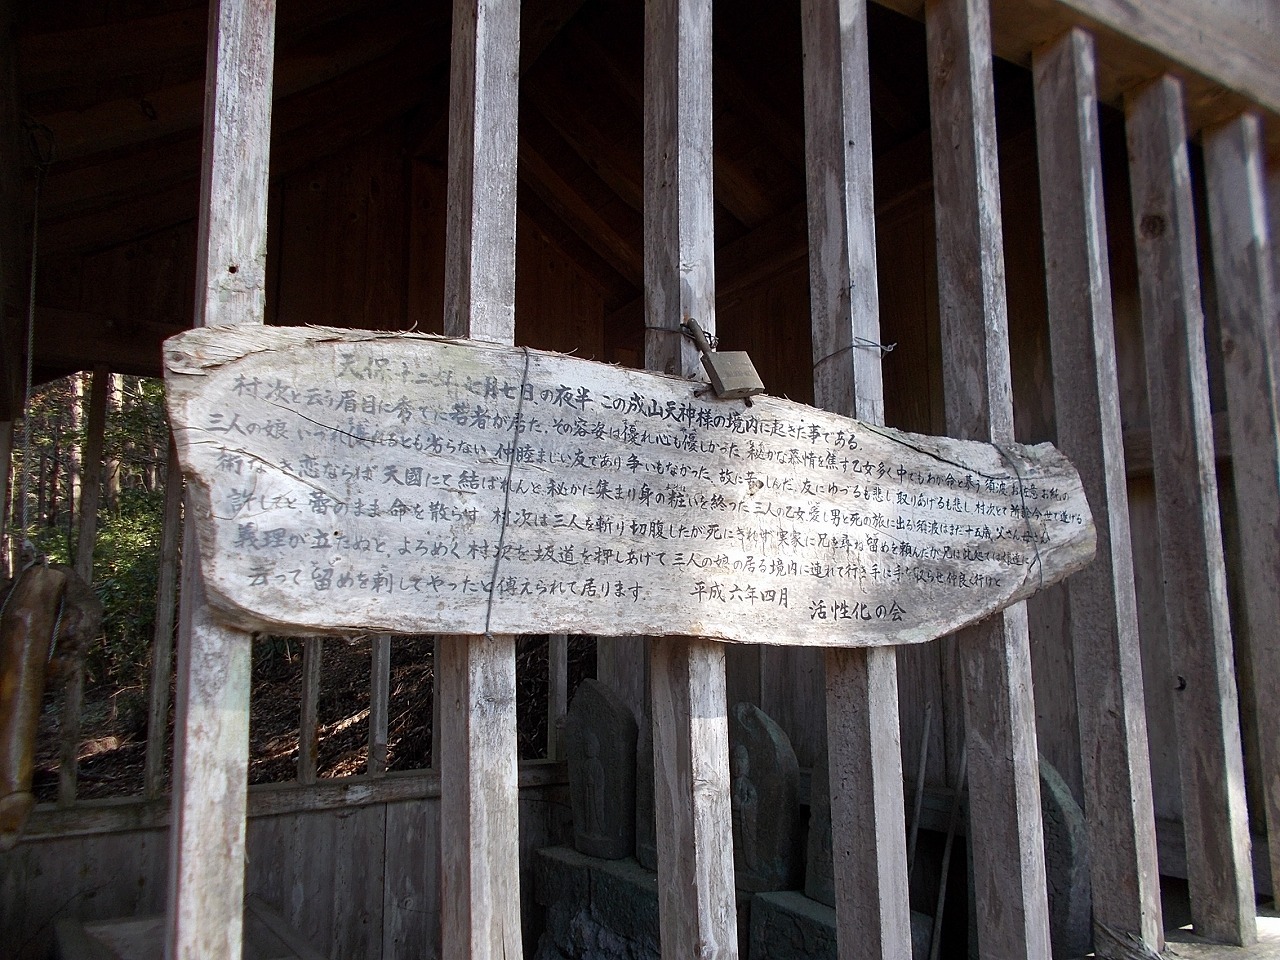 天保十二年七月七日の夜半、この成山天神様の境内に起きた事である。
村次と云う眉目に秀でた若者が居た。その容姿は優れ心も優しかった。秘かな慕情を焦す乙女多く中でもわが命と慕う須波 お佐意 お
三人の娘 いづれ とも劣らない 仲睦まじい友であり争いもなかった。故に苦しんだ。友にゆづるも悲し 取りあげるも悲し 村次とて
術なき恋ならば 天國にて結ばれんと、秘かに集まり身の粧いを終った 三人の乙女、愛し男と死の旅に出る 須波はまだ十五歳 父さん母さん
許してと 蕾のまま命を散らす 村次は三人を斬り切腹したが死にきれず 実家に兄を尋ね 留めを頼んだが兄は
義理が立たぬと、よろめく村次を坂道を押しあげて 三人の娘の居る境内に連れて行き 手に手を 仲良く行けと
云って留めを刺してやったと傳えられて居ります。 平成六年四月 活性化の会